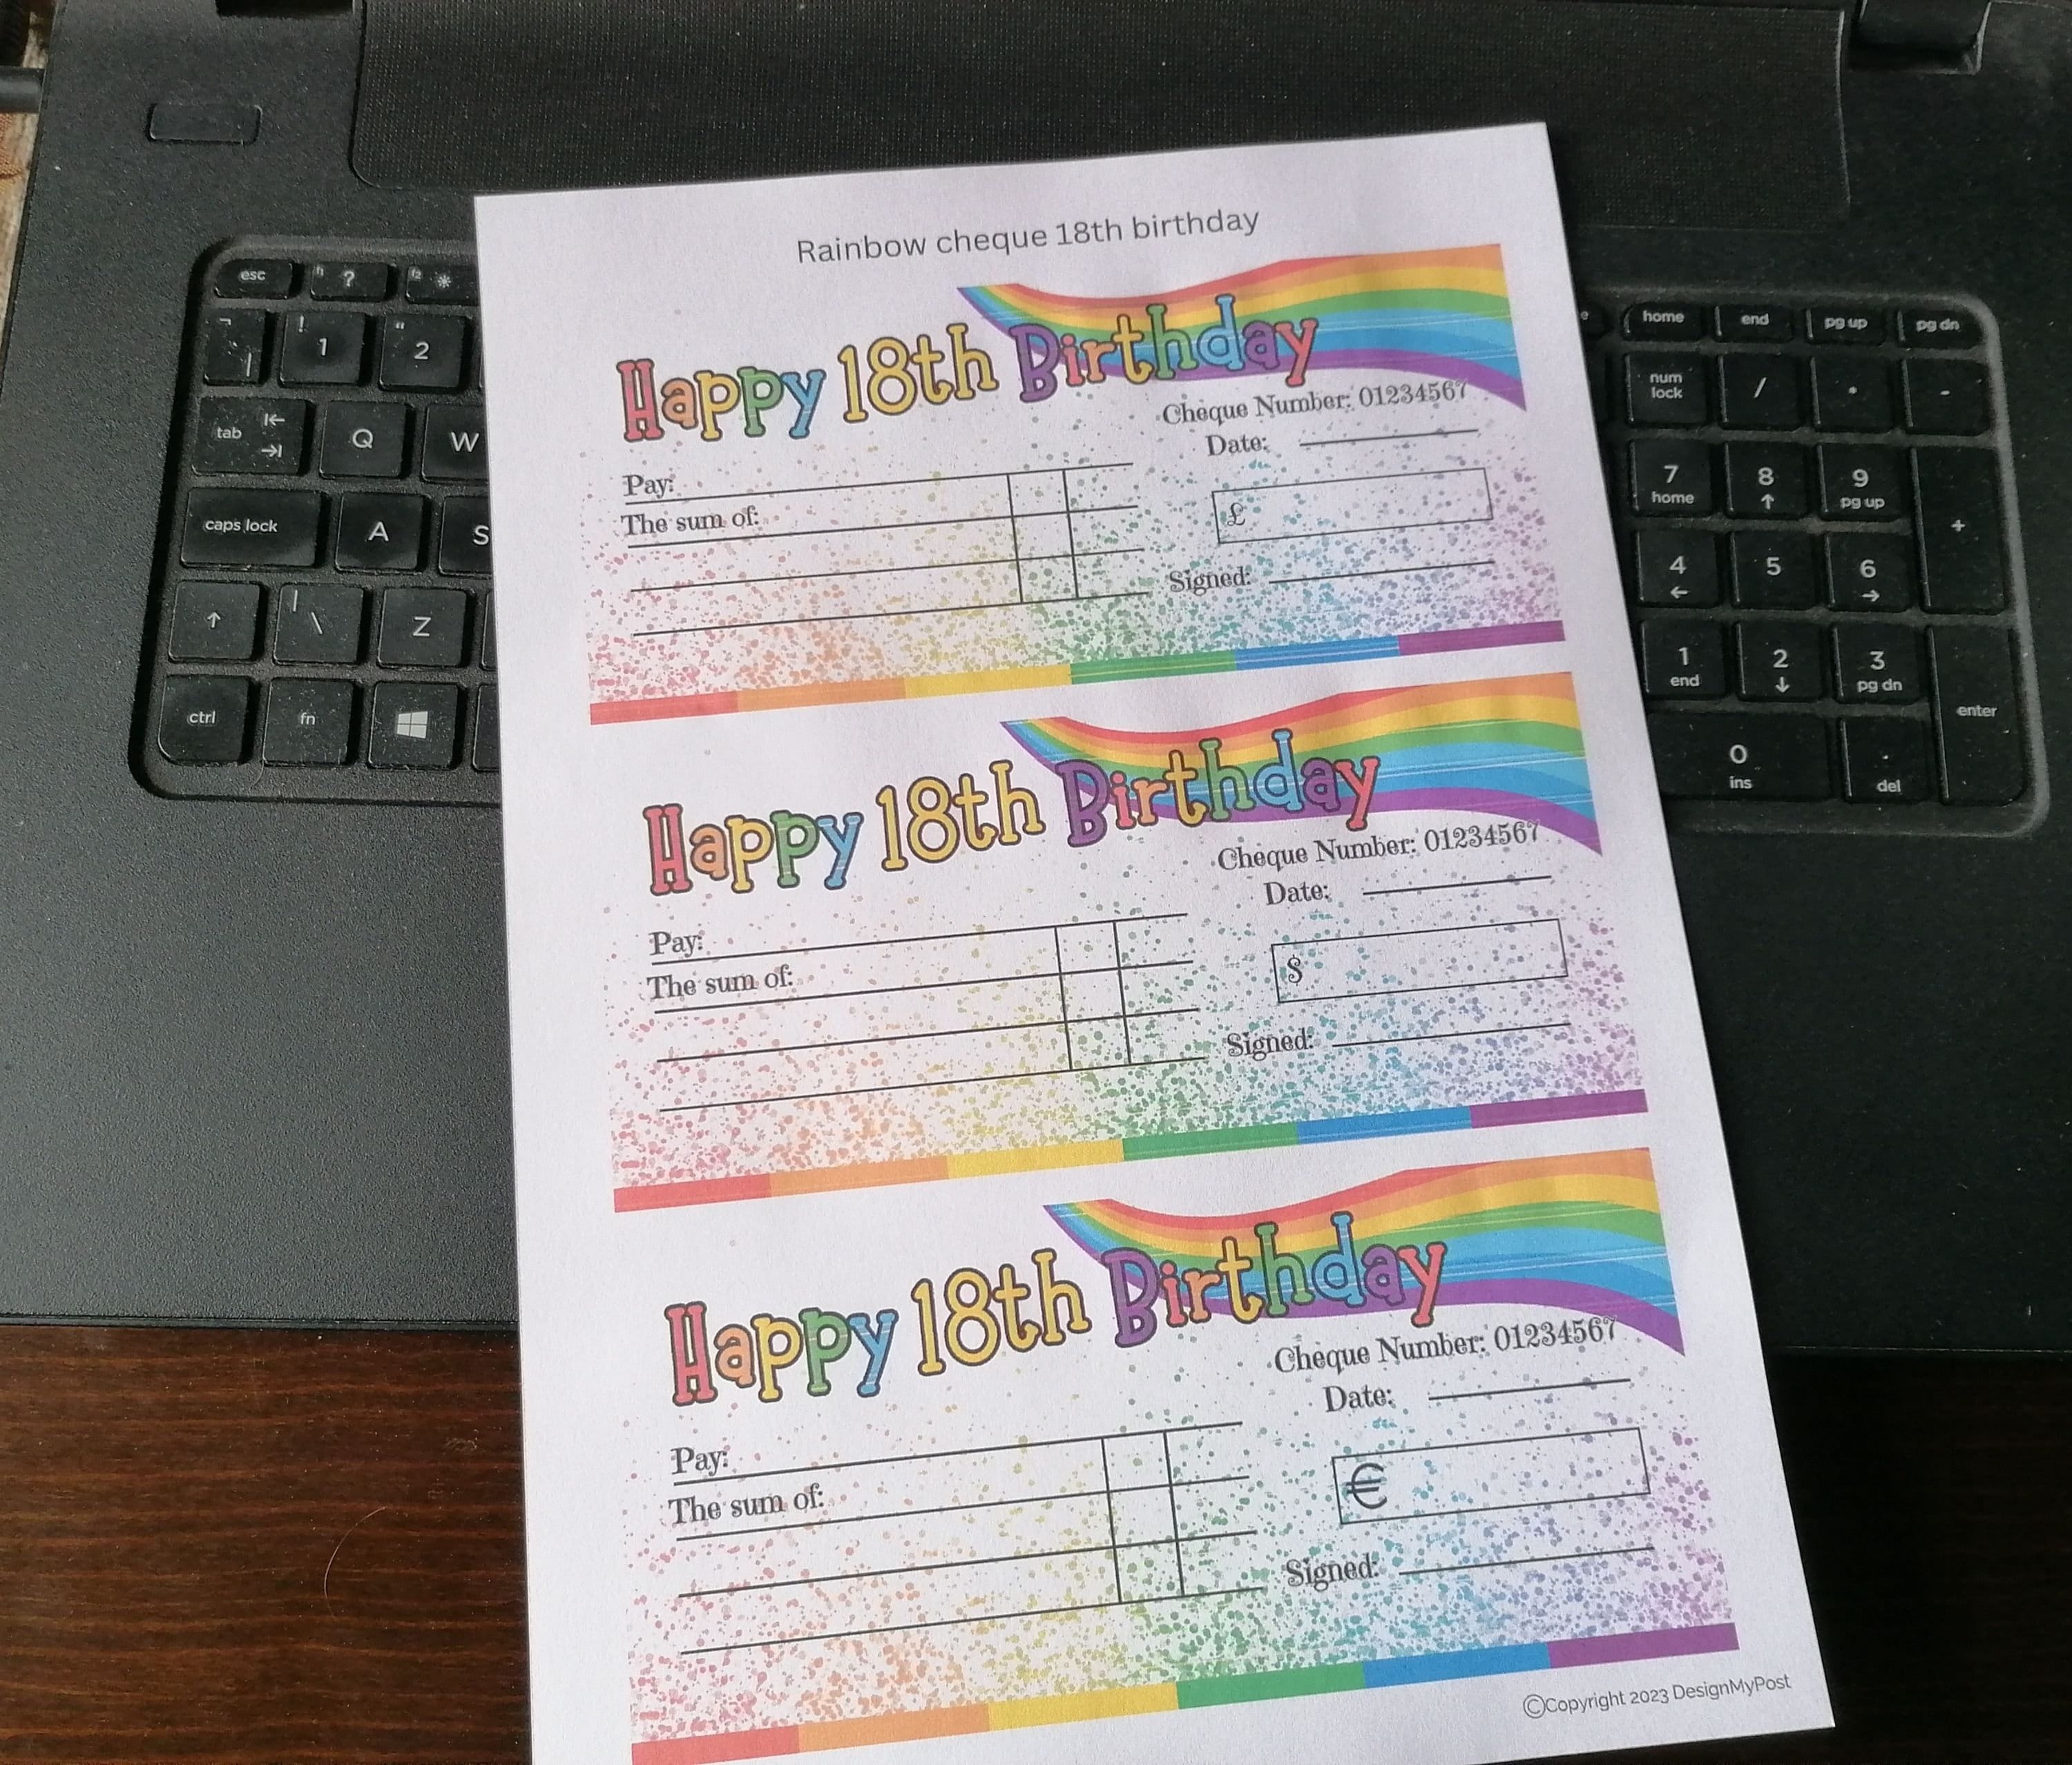 Rainbow cheque 18th birthday
Happy 18th Birthday
Cheque Number: 01234567
Date:
Pay:
The sum of:
£
Signed:
Happy 18th Birthday
Cheque Number: 01234567
Date:
Pay:
The sum of:
$
Signed:
Happy 18th Birthday
Cheque Number: 01234567
Date:
Pay:
The sum of:
€
Signed:
©Copyright 2023 DesignMyPost
esc
?
! 1
" 2
tab
Q
W
caps lock
A
S
\
Z
ctrl
fn
home
end
pg up
pg dn
num lock
/
-
7 home
8
9 pg up
+
4
5
6
1 end
2
3 pg dn
enter
0 ins
. del